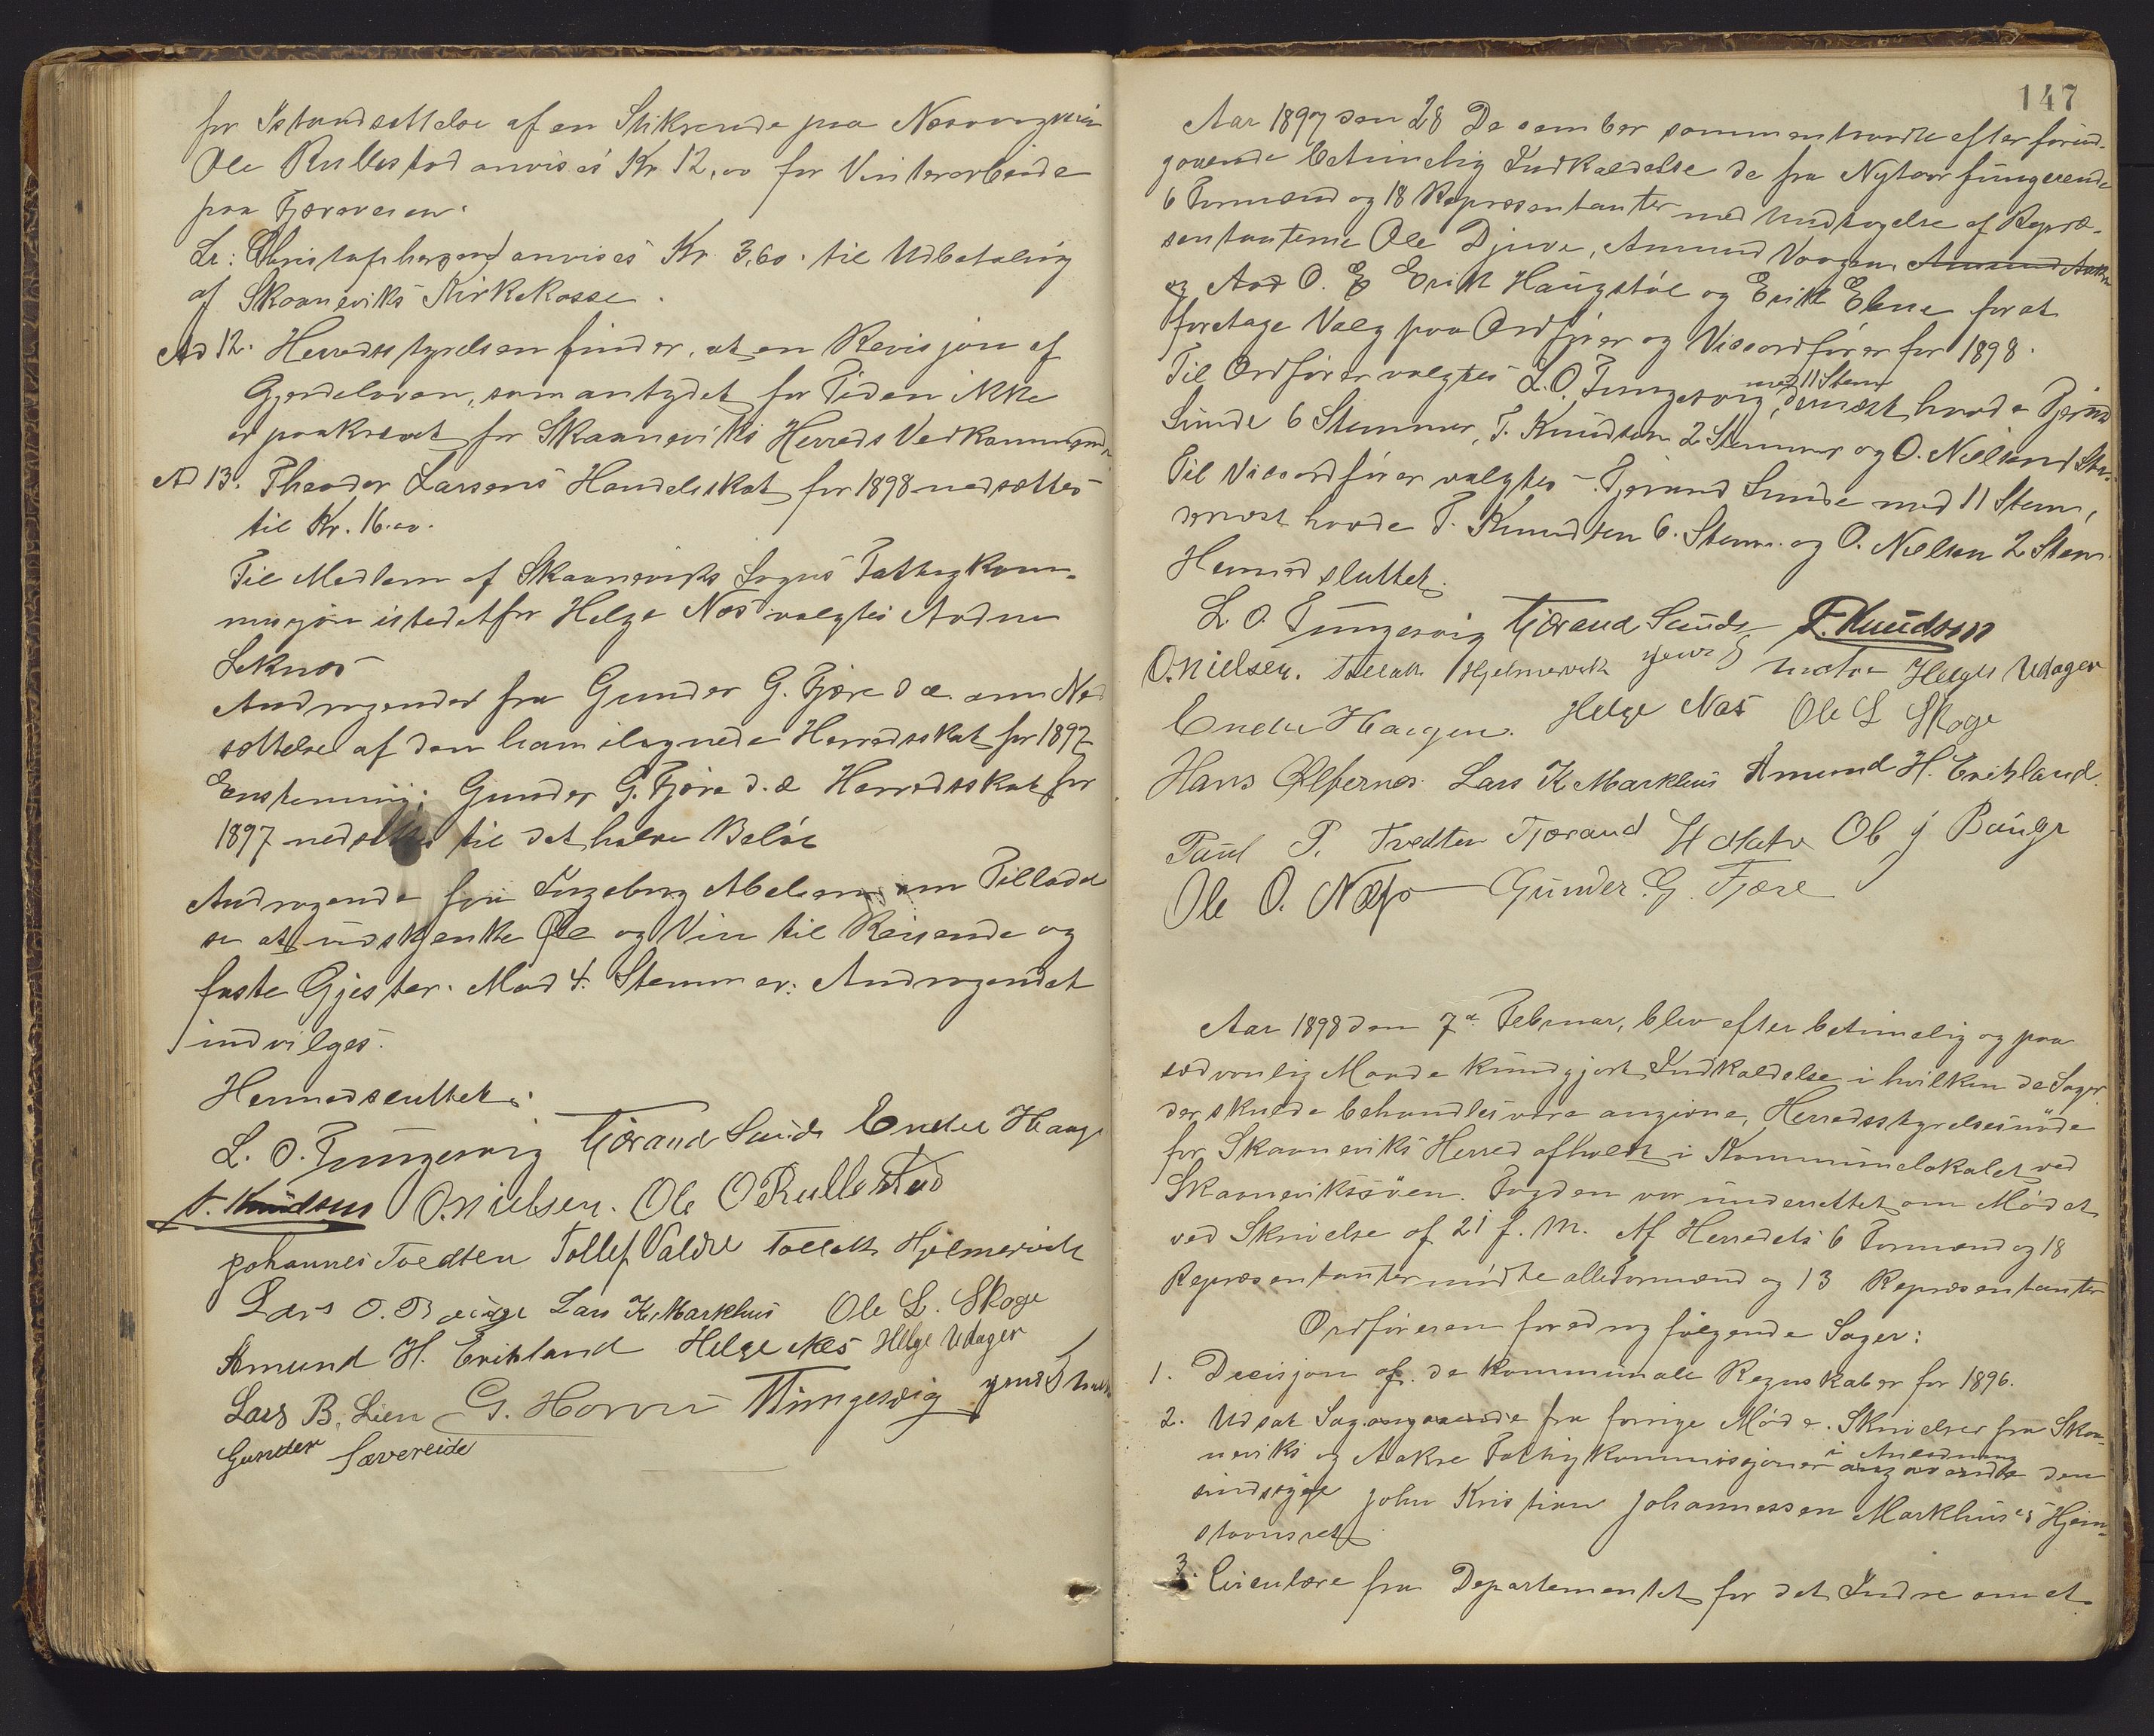 for Istandsættelse af en Stikrende paa
Ole Rullestad anvises Kr 12,00 for Vinterarbeide
paa Fjæraveien.
Lr: Christophersen anvises Kr. 3,60. til Udbetaling
af Skaaneviks Kirkekasse.
Ad 12. Herredsstyrelsen finder, at en Revisjon af
Gjerdeloven, som antydet for Tiden ikke
er paakrævet for Skaaneviks Herreds Vedkommende
Ad 13. Theodor Larsens Handelsskat for 1898 nedsættes
til Kr. 16.00.
Til Medlem af Skaaneviks Sogns Fattigkom-
misjon istedetfor Helge Næs valgtes Andne
Leknes
Andragender fra Gunder G. Fjære d. æ. om Ned
sættelse af den ham ilignede Herredsskat for 1897
Enstemmig: Gunder G. Fjære d. æ Herredsskat for
1897 nedsættes til det halve Beløb
Andragende fra Ingeborg Abelsen om Tilladel
se at udskjenke Øl og Vin til Reisende og
faste Gjester. Mod 4. Stemmer: Andragendet
indvilges.
Hermed sluttet:
L. O. Tungesvig Tjærand Sunde Endre Hauge
T. Knudsen O. Nielsen. Ole O Rullestad
Johannes Tvedten Tollef Valdre Tollak Hjelmervik
Lars O. Bauge Lars K. Markhus Ole L. Skoge
Amund H. Eritzland Helge Næs Helge Udager
Lars B. Lien G. Horvei Tungesvig Jens
Gunder Sævereide
147
Aar 1897 den 28 December sammentraadte efter forud-
gaaende betimelig Indkaldelse de fra Nytaar fungerende
6 Formænd og 18 Repræsentanter med Undtagelse af Repræ-
sentanterne Ole Djuve, Amund Vaagen, Amund
og Aad O. Erik Haugstøl og Erik Ebne for at
foretage Valg paa Ordfører og Viceordfører for 1898.
Til Ordfører valgtes L. O. Tungesvig med 11 Stem, dernæst havde Tjærand
Sunde 6 Stemmer, T. Knudsen 2 Stemmer og O. Nielsen 1 Stem.
Til Viceordfører valgtes Tjærand Sunde med 11 Stem,
dernæst havde T. Knudsen 6. Stem. og O. Nielsen 2 Stem.
Hermed sluttet.
L. O. Tungesvig Tjærand Sunde T. Knudson
O. Nielsen. Tollak Hjelmervik Jens Helge Udager
Endre Haugen. Helge Næs Ole L Skoge
Hans Ølfernes Lars K Markhus Amund H. Eritzland
Paul P. Tvedten Tjærand Ole J Bauge
Ole O. Næss Gunder G. Fjære
Aar 1898 den 7de Februar, blev efter betimelig og paa
sædvanlig Maade kundgjort Indkaldelse i hvilken de Sager
der skulde behandles vare angivne, Herredsstyrelsesmøde
for Skaaneviks Herred afholdt i Kommunelokalet ved
Skaanevikssøen. Fogden var underrettet om Mødet
ved Skrivelse af 21 f. M. Af Herredets 6 Formænd og 18
Repræsentanter mødte alle Formænd og 13 Repræsentanter
Ordføreren foredrog følgende Sager:
1. Decisjon af de kommunale Regnskaber for 1896.
2. Udsat Sag angaaende fra forrige Møde. Skrivelser fra Skaa-
neviks og Aakre Fattigkommissjoner i Anledning angaaende den
sindssyge John Kristian Johannessen Markhus's Hjem-
stavnsret
3. Circulære fra Departementet for det Indre om at